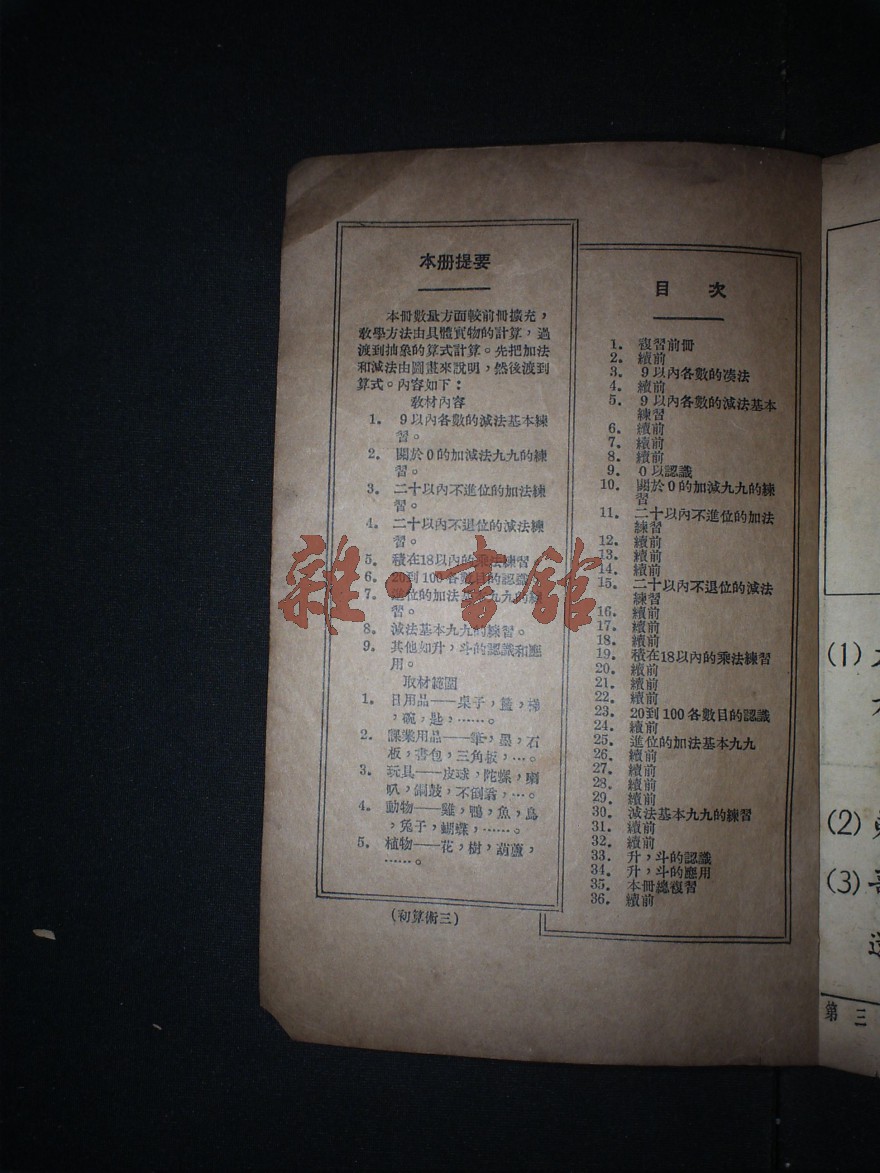 本册提要
本冊數量方面較前冊擴充，
敎學方法由具體實物的計算，過
渡到抽象的算式計算。先把加法
和減法由圖畫來說明，然後渡到
算式。內容如下：
敎材內容
1. 9以內各數的減法基本練
習。
2. 關於0的加減法九九的練
習。
3. 二十以內不進位的加法練
習。
4. 二十以內不退位的減法練
習。
5. 積在18以內的乘法練習
6. 20到100各數目的認識
7. 進位的加法基本九九的練
習。
8. 減法基本九九的練習。
9. 其他如升，斗的認識和應
用。
取材範圍
1. 日用品——桌子，籃，梯
，碗，匙，……。
2. 課業用品——筆，墨，石
板，書包，三角板，…。
3. 玩具——皮球，陀螺，喇
叭，銅鼓，不倒翁，…。
4. 動物——雞，鴨，魚，鳥
，兔子，蝴蝶，……。
5. 植物——花，樹，葫蘆，
……。
(初算術三)
目 次
1. 複習前冊
2. 續前
3. 9以內各數的湊法
4. 續前
5. 9以內各數的減法基本
練習
6. 續前
7. 續前
8. 續前
9. 0以認識
10. 關於0的加減九九的練
習
11. 二十以內不進位的加法
練習
12. 續前
13. 續前
14. 續前
15. 二十以內不退位的減法
練習
16. 續前
17. 續前
18. 續前
19. 積在18以內的乘法練習
20. 續前
21. 續前
22. 續前
23. 20到100各數目的認識
24. 續前
25. 進位的加法基本九九
26. 續前
27. 續前
28. 續前
29. 續前
30. 減法基本九九的練習
31. 續前
32. 續前
33. 升，斗的認識
34. 升，斗的應用
35. 本冊總複習
36. 續前
雜·書館
(1)
(2)
(3)
第三